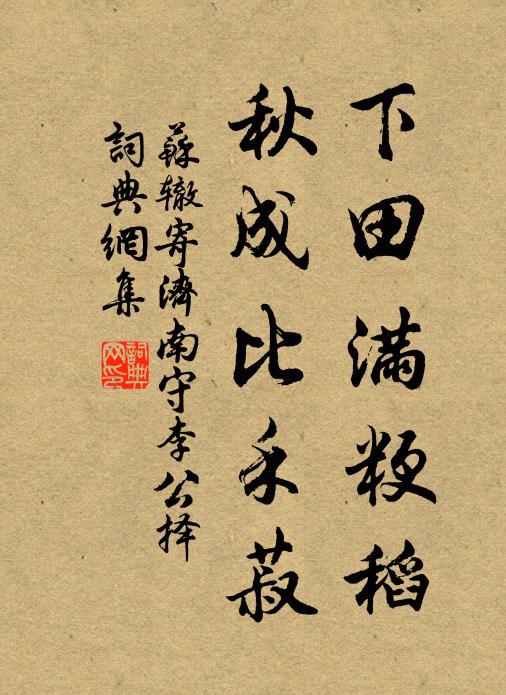 下田满粳稻
秋成比禾菽
蘇辙寄濟南守李公择
詞典網集
詞典網印